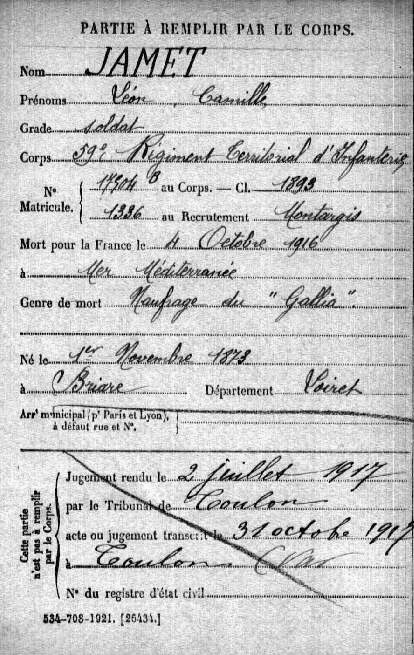 PARTIE À REMPLIR PAR LE CORPS.
Nom JAMET
Prénoms Léon Camille
Grade soldat
Corps 59e Régiment Territorial d'Infanterie
Nos Matricule. { 17904 B au Corps. — Cl. 1893
1336 au Recrutement Montargis
Mort pour la France le 4 Octobre 1916
à Mer Méditerranée
Genre de mort Naufrage du "Gallia".
Né le 1er Novembre 1873
à Briare Département Loiret
Arrt municipal (pr Paris et Lyon),
à défaut rue et No.
Cette partie n'est pas à remplir par le Corps.
Jugement rendu le 2 juillet 1917
par le Tribunal de Toulon
acte ou jugement transcrit le 31 octobre 1917
à Toulon. Var
No du registre d'état civil
534-708-1921. [26434.]